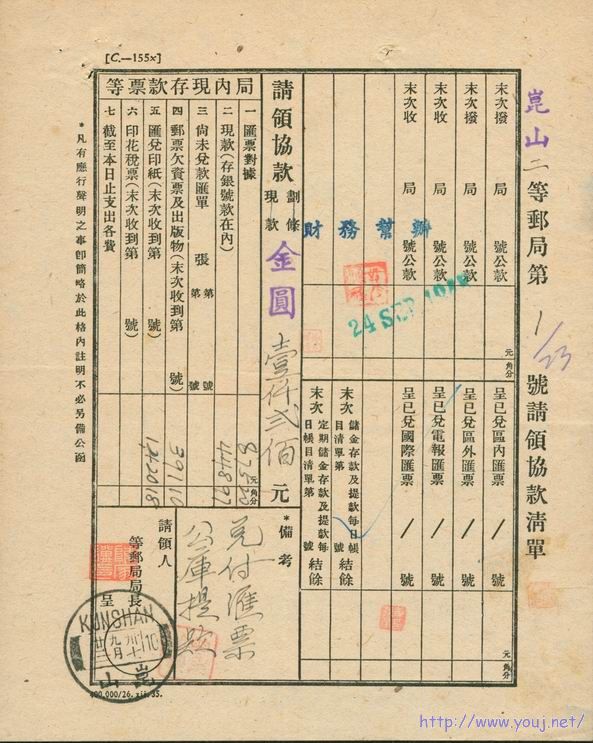 [C.—155x]
崑山二等郵局第1/23號請領協款清單
末次撥 局 號公款
末次撥 局 號公款
末次收 局 號公款
末次收 局 號公款
元 角 分
呈已兌區內匯票 / 號
呈已兌區外匯票 / 號
呈已兌電報匯票 / 號
呈已兌國際匯票 / 號
儲金存款及提款每日帳
末次 目清單第 號 結餘
定期儲金存款及提款每
末次 日帳目清單第 號 結餘
元 角 分
財務幫辦
24 SEP 1948
請領協款 劃條 現款 金圓壹仟弍佰元
局內現存款票等
一 匯票對據
二 現款(存銀號款在內)
三 尚未兌款匯單 張 第 號 第 號
四 郵票欠資票及出版物(末次收到第 號)
五 匯兌印紙(末次收到第 號)
六 印花稅票(末次收到第 號)
七 截至本日止支出各費
元 角 分
*備考
兌付匯票
公庫提款
請領人
等郵局局長
呈
KUNSHAN
崑山
*凡有應行聲明之事卽簡略於此格內註明不必另備公函
400,000/26. xii. 35.
http://www.youj.net/